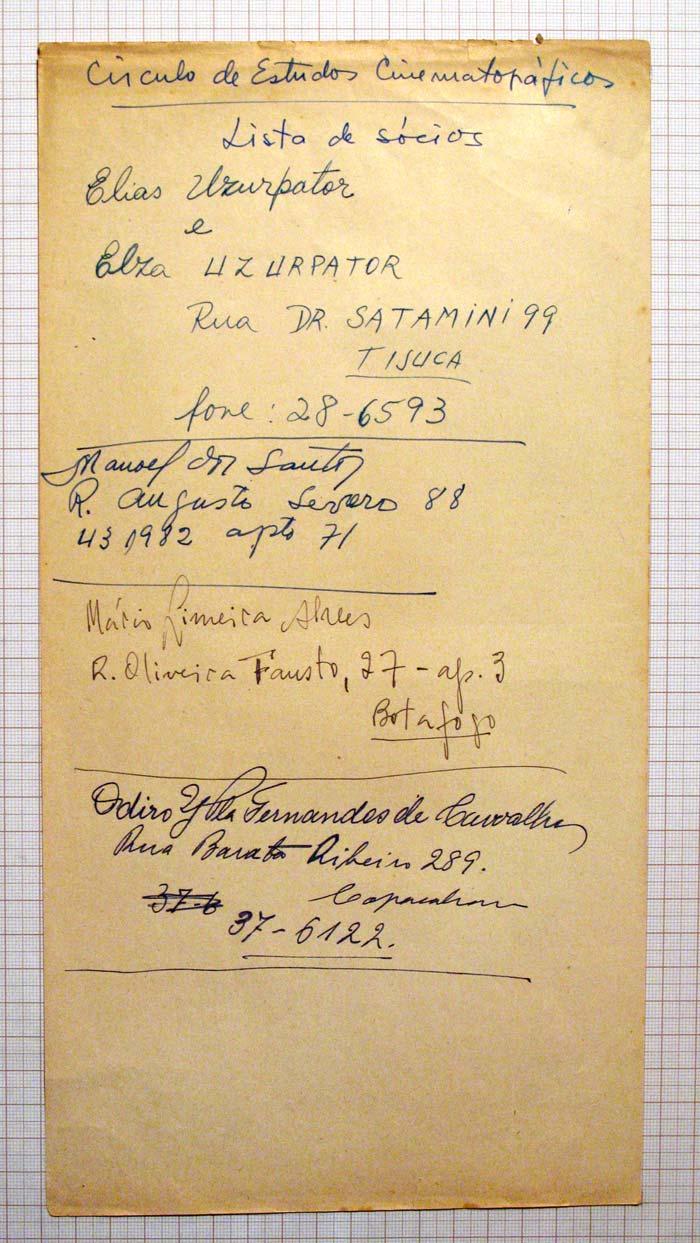 Círculo de Estudos Cinematográficos
Lista de sócios
Elias Uzurpator
e
Elza UZURPATOR
Rua DR. SATAMINI 99
TIJUCA
fone: 28-6593
Manoel dos Santos
R. Augusto Severo 88
43 1982 apto 71
Márcio Limeira Alves
R. Oliveira Fausto, 27 - ap. 3
Botafogo
Odiro Fernandes de Carvalho
Rua Barata Ribeiro 289.
37-6 Copacabana
37-6122.